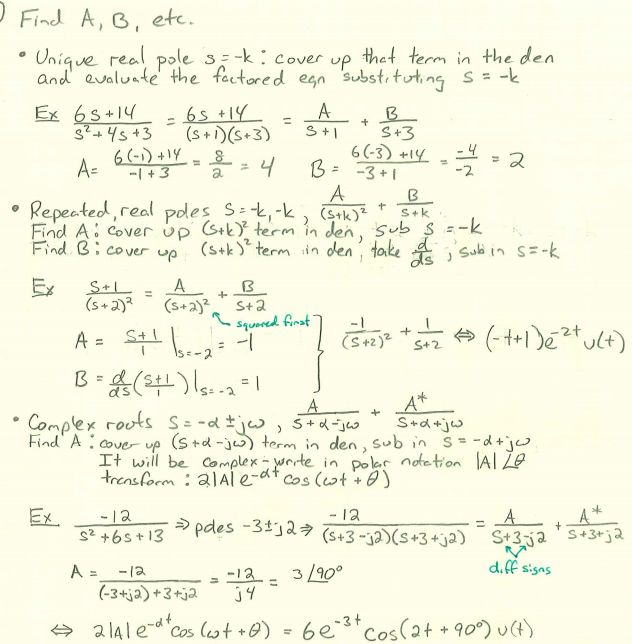 ) Find A, B, etc.
• Unique real pole s = -k : cover up that term in the den
and evaluate the factored eqn substituting s = -k
Ex (6s+14)/(s²+4s+3) = (6s+14)/((s+1)(s+3)) = A/(s+1) + B/(s+3)
A = (6(-1)+14)/(-1+3) = 8/2 = 4 B = (6(-3)+14)/(-3+1) = -4/-2 = 2
• Repeated, real poles s = -k, -k , A/(s+k)² + B/(s+k)
Find A : cover up (s+k)² term in den, sub s = -k
Find B : cover up (s+k)² term in den, take d/ds , sub in s = -k
Ex (s+1)/(s+2)² = A/(s+2)² + B/(s+2)
squared first
A = (s+1)/1 |s=-2 = -1
-1/(s+2)² + 1/(s+2) ⇔ (-t+1)e^-2t u(t)
B = d/ds((s+1)/1)|s=-2 = 1
• Complex roots s = -α ± jω , A/(s+α-jω) + A*/(s+α+jω)
Find A : cover up (s+α-jω) term in den, sub in s = -α+jω
It will be complex - write in polar notation |A|∠θ
transform : 2|A|e^-αt cos(ωt+θ)
Ex -12/(s²+6s+13) ⇒ poles -3±j2 ⇒ -12/((s+3-j2)(s+3+j2)) = A/(s+3-j2) + A*/(s+3+j2)
diff signs
A = -12/((-3+j2)+3+j2) = -12/j4 = 3∠90°
⇔ 2|A|e^-αt cos(ωt+θ) = 6e^-3t cos(2t+90°) u(t)